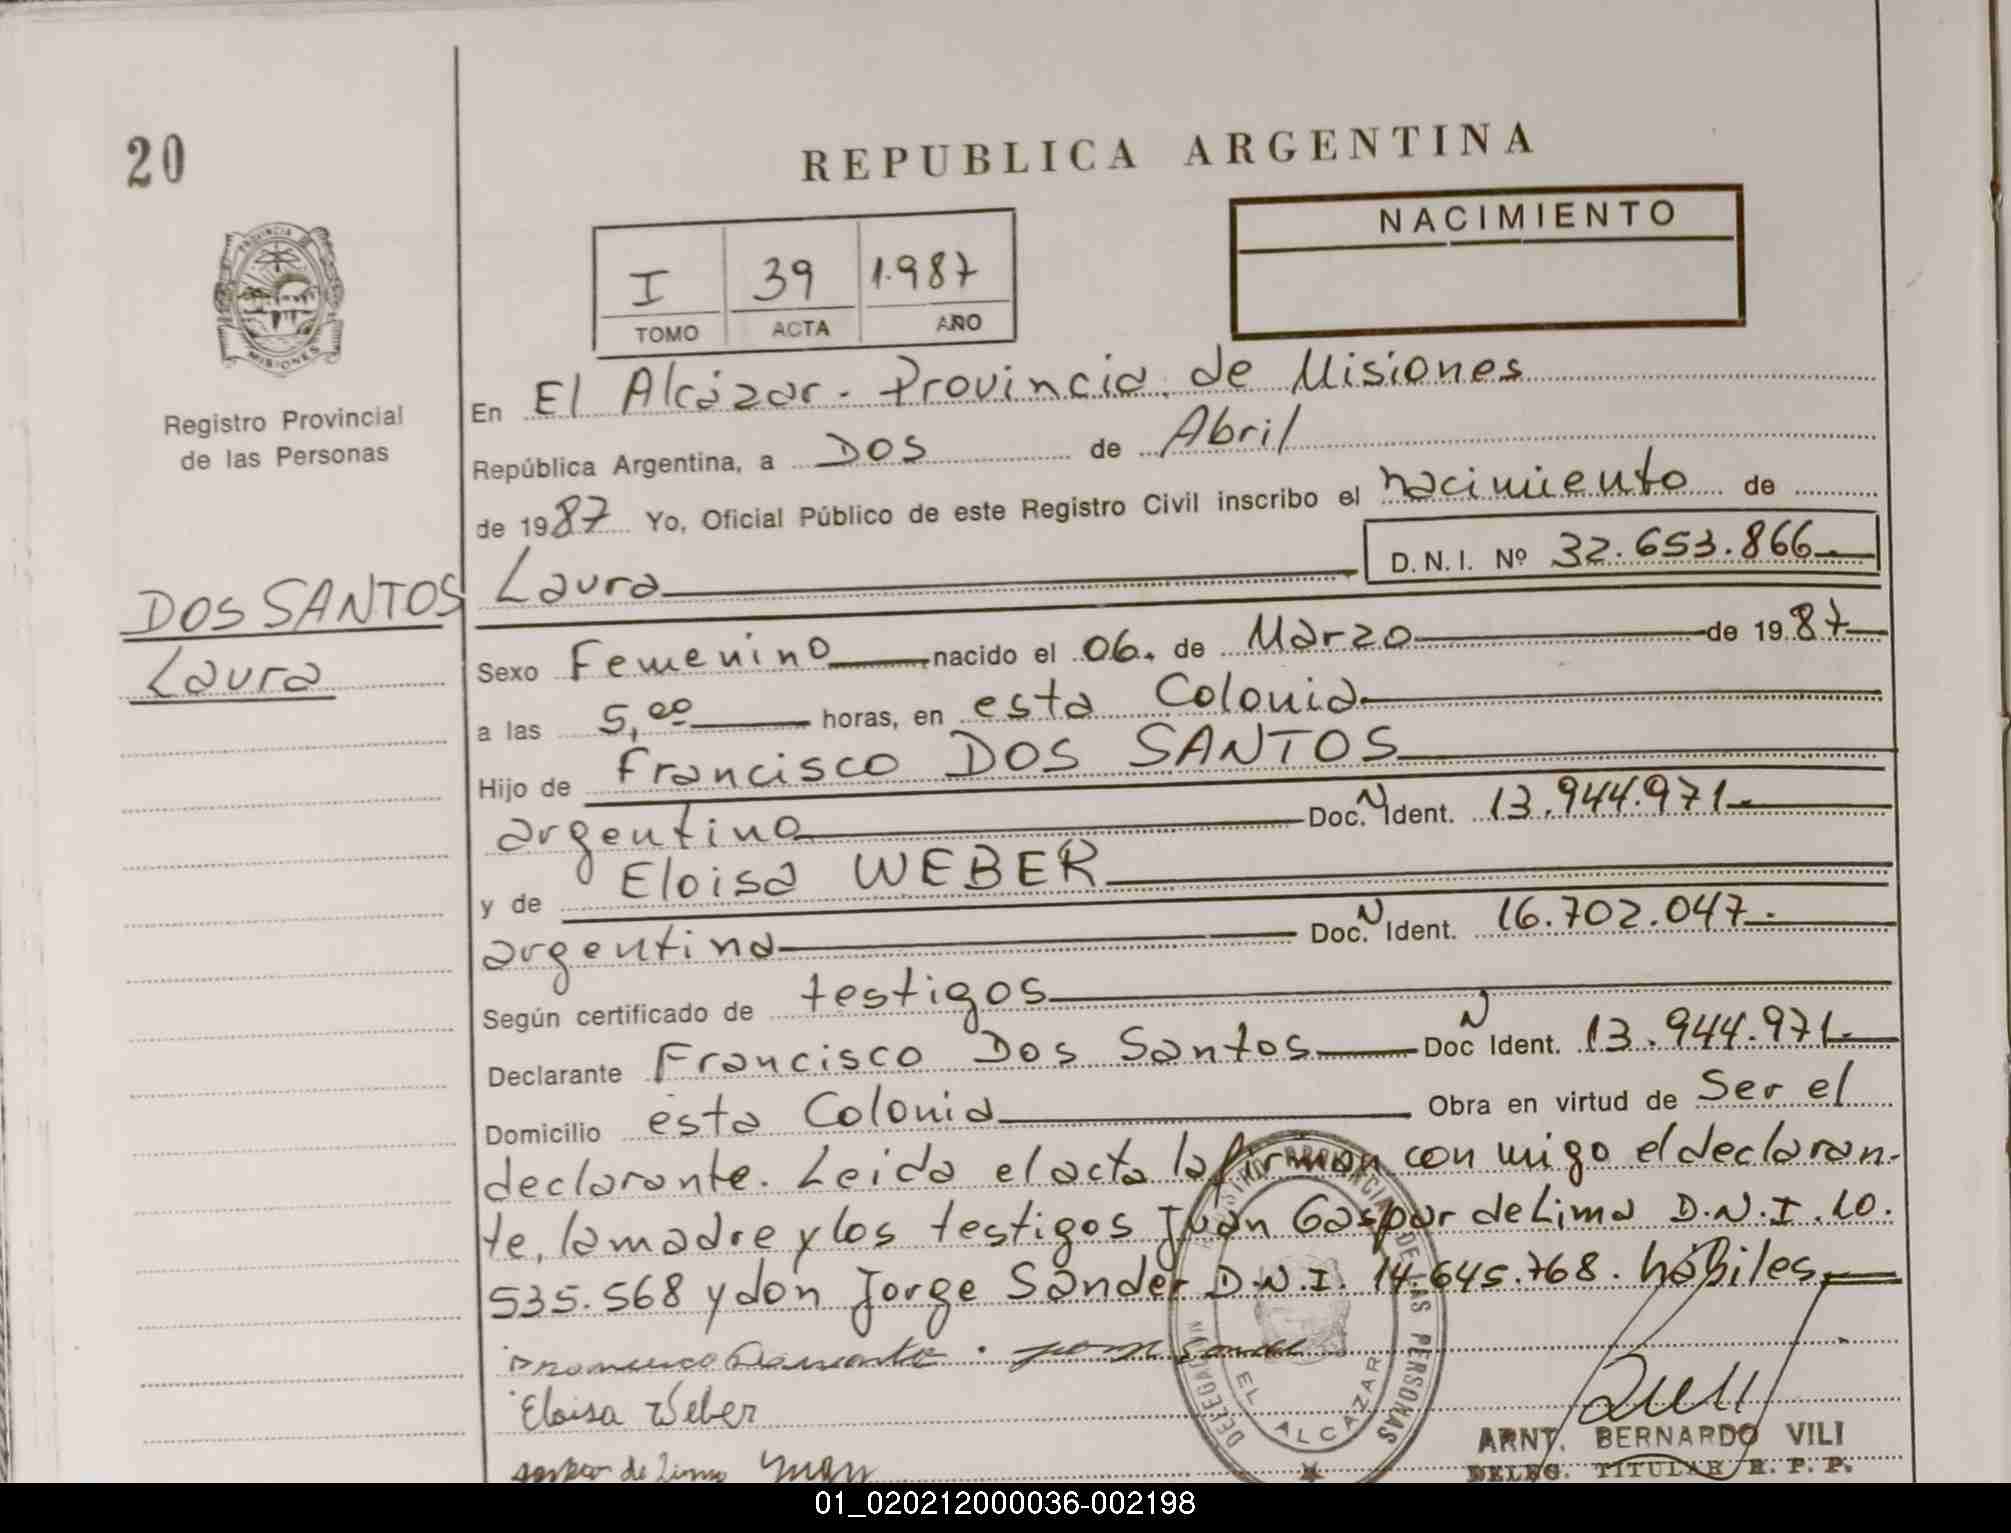 20
REPUBLICA ARGENTINA
NACIMIENTO
I 39 1.987
TOMO ACTA AÑO
PROVINCIA DE
MISIONES
Registro Provincial
de las Personas
DOS SANTOS
Laura
En El Alcázar - Provincia de Misiones
República Argentina, a DOS de Abril
de 1987 Yo, Oficial Público de este Registro Civil inscribo el nacimiento de
Laura D.N.I. Nº 32.653.866
Sexo Femenino nacido el 06. de Marzo de 1987
a las 5,00 horas, en esta Colonia
Hijo de Francisco DOS SANTOS
argentino Doc. N Ident. 13.944.971
y de Eloisa WEBER
argentina Doc. N Ident. 16.702.047.
Según certificado de testigos
Declarante Francisco Dos Santos Doc N Ident. 13.944.971
Domicilio esta Colonia Obra en virtud de Ser el
declarante. Leida el acta la firman con migo el declaran-
te, la madre y los testigos Juan Gaspar de Lima D.N.I. 10.
535.568 y don Jorge Sander D.N.I. 14.645.768. hábiles
Eloisa Weber
gaspar de Lima Juan
DELEGACION
REGISTRO PROVINCIAL DE LAS PERSONAS
EL ALCAZAR
ARNT. BERNARDO VILI
DELEG. TITULAR R. P. P.
01_020212000036-002198